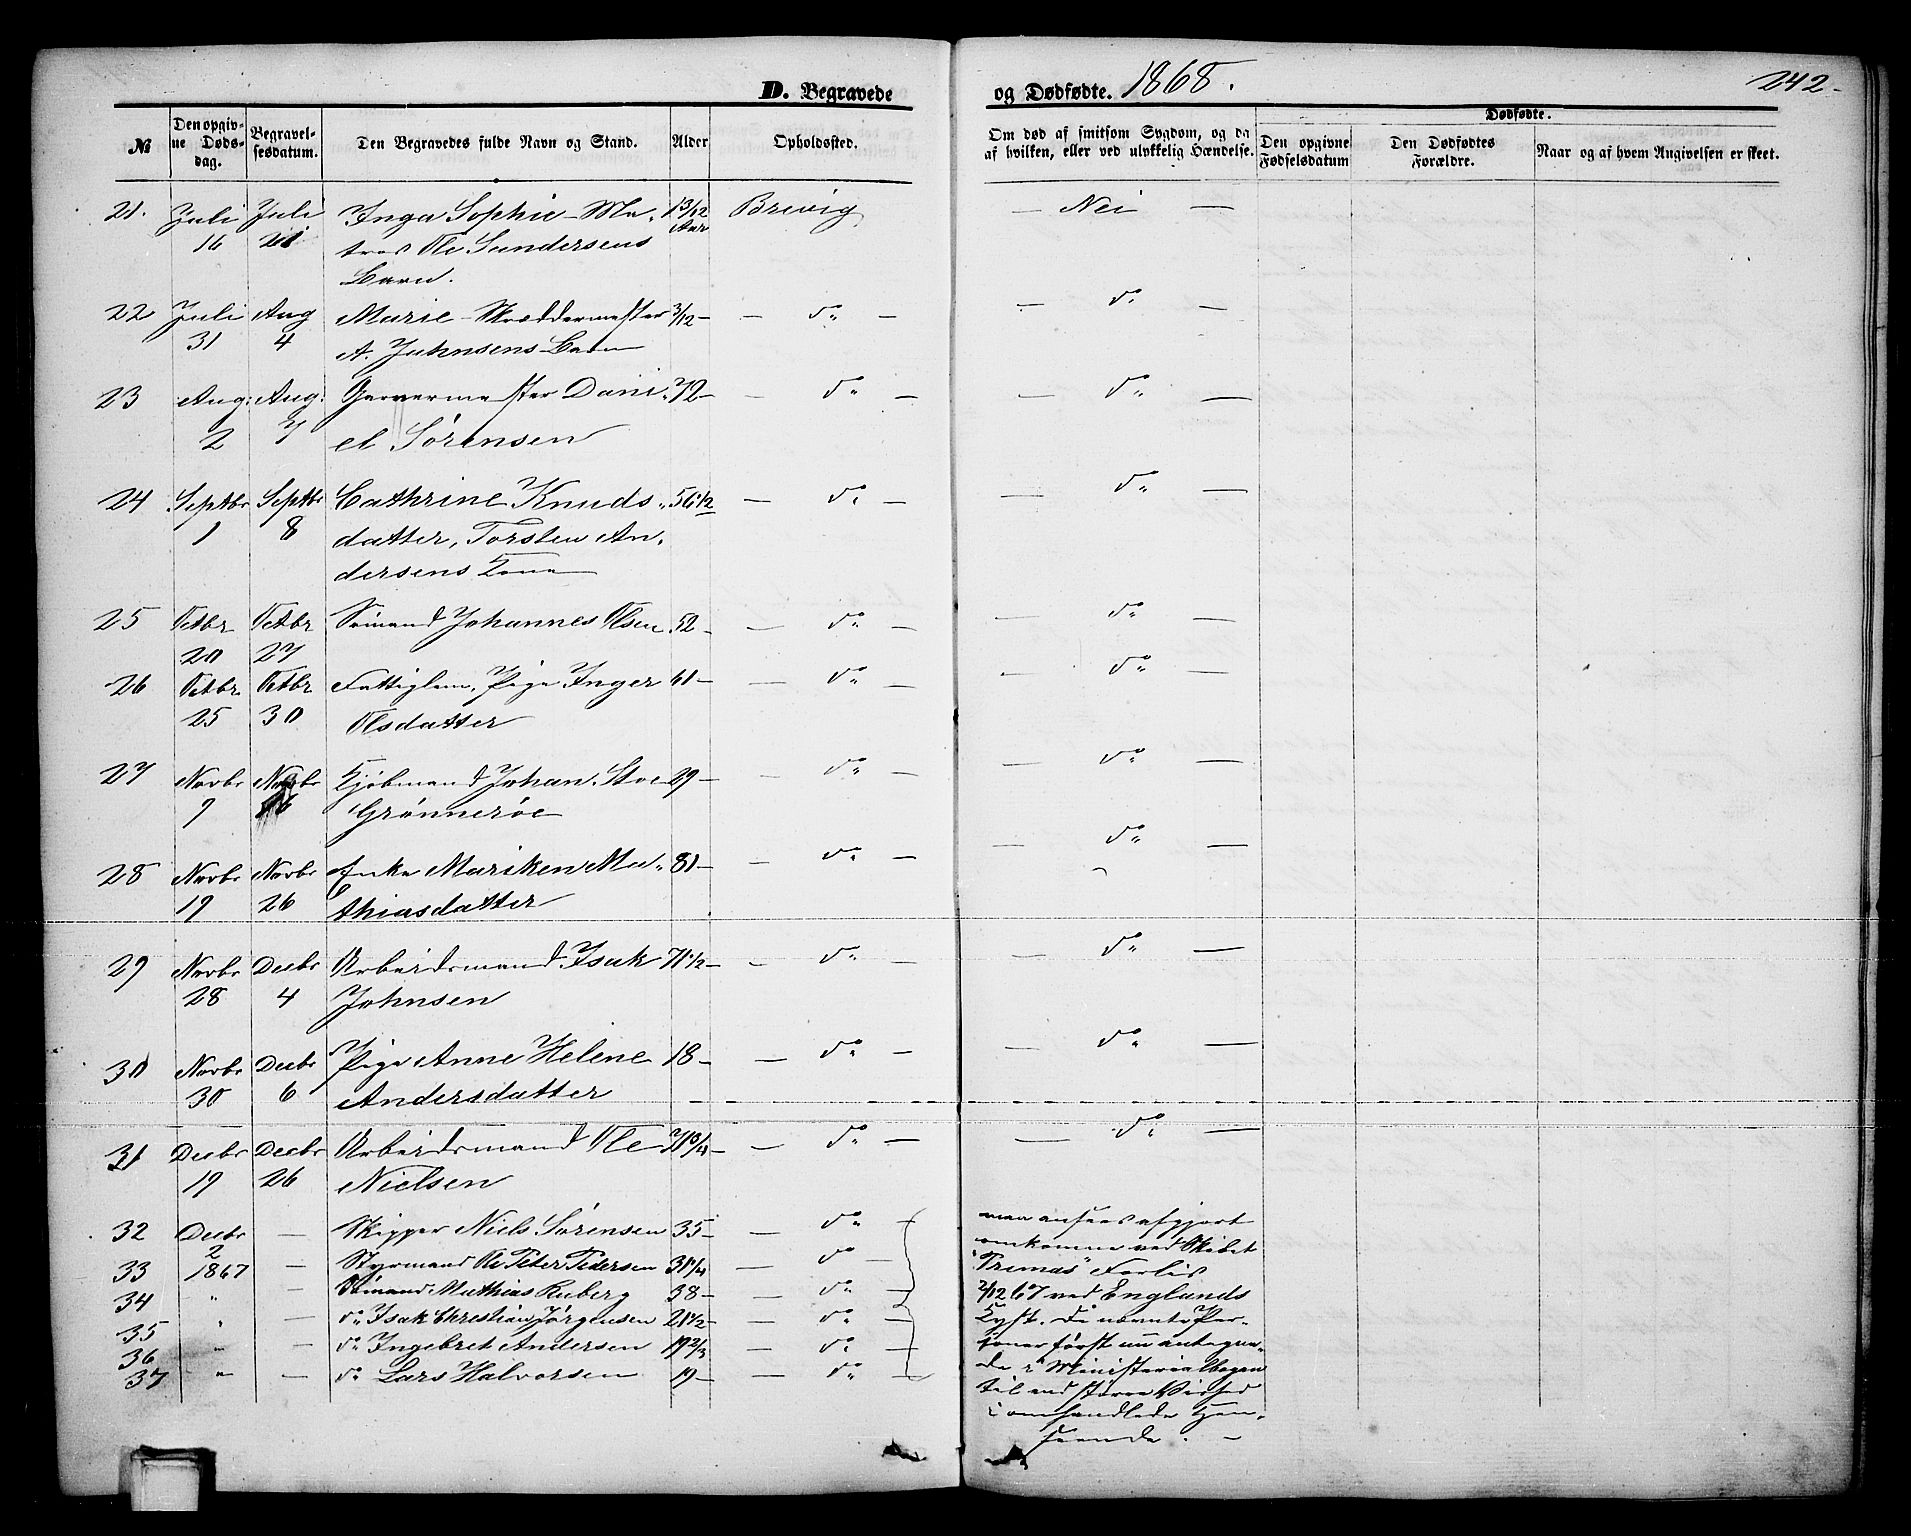 D. Begravede og Dødfødte. 1868. 242.
№ Den opgivne Dødsdag. Begravelsesdatum. Den Begravedes fulde Navn og Stand. Alder Opholdssted. Om død af smitsom Sygdom, og da af hvilken, eller ved ulykkelig Hændelse. Dødfødte. Den opgivne Fødselsdatum Den Dødfødtes Forældre. Naar og af hvem Angivelsen er skeet.
21. Juli Juli Inga Sophie – Ma- 1 3/12 Brevig – Nei –
16 21 tros Ole Gundersens Aar
Barn.
22 Juli Aug Marie – Skræddermester 3/12 – – do – – do –
31 4 A. Johnsens Barn
23 Aug: Aug: Garvermester Dani- 72 – – do – – do –
2 7 el Sørensen
24 Septbr Septbr Cathrine Knuds- 56 1/2 – do – – do –
1 8 datter, Torsten An-
dersens Kone
25 Octbr Octbr Sømand Johannes Olsen 52 – – do – – do –
20 27
26 Octbr Octbr Fattiglem, Pige Inger 61 – – do – – do –
25 30 Olsdatter
27 Novbr Novbr Kjøbmand Johan Stoe 29 – – do – – do –
9 Grønnerøe
28 Novbr Novbr Enke Mariken Ma- 81 – – do – – do –
19 26 thiasdatter
29 Novbr Decbr Arbeidsmand Isak 71 1/2 – – do – – do –
28 4 Johnsen
30 Novbr Decbr Pige Anne Helene 18 – – do – – do –
30 6 Andersdatter
31 Decbr Decbr Arbeidsmand Ole 71 3/4 – – do – – do –
19 26 Nielsen
32 Decbr – Skipper Niels Sørensen 35 – – do – maa ansees afgjort
2 omkomne ved Skibet
33 1867 – Styrmand Ole Peter Pedersen 31 1/4 – do – Forlis
34 " – Sømand Mathias Ruberg 38 – – do – 2/12 67 ved Englands
35 " – do Isak Christian Jørgensen 21 1/2 – – do – Kyst. De nævnte Per-
36 " – do Ingebret Andersen 19 2/3 – do – soner først nu antegne-
37 " – do Lars Halvorsen 19 – – do – de i Ministerialbogen
til end større Vished
i omhandlede Hen-
seende. –